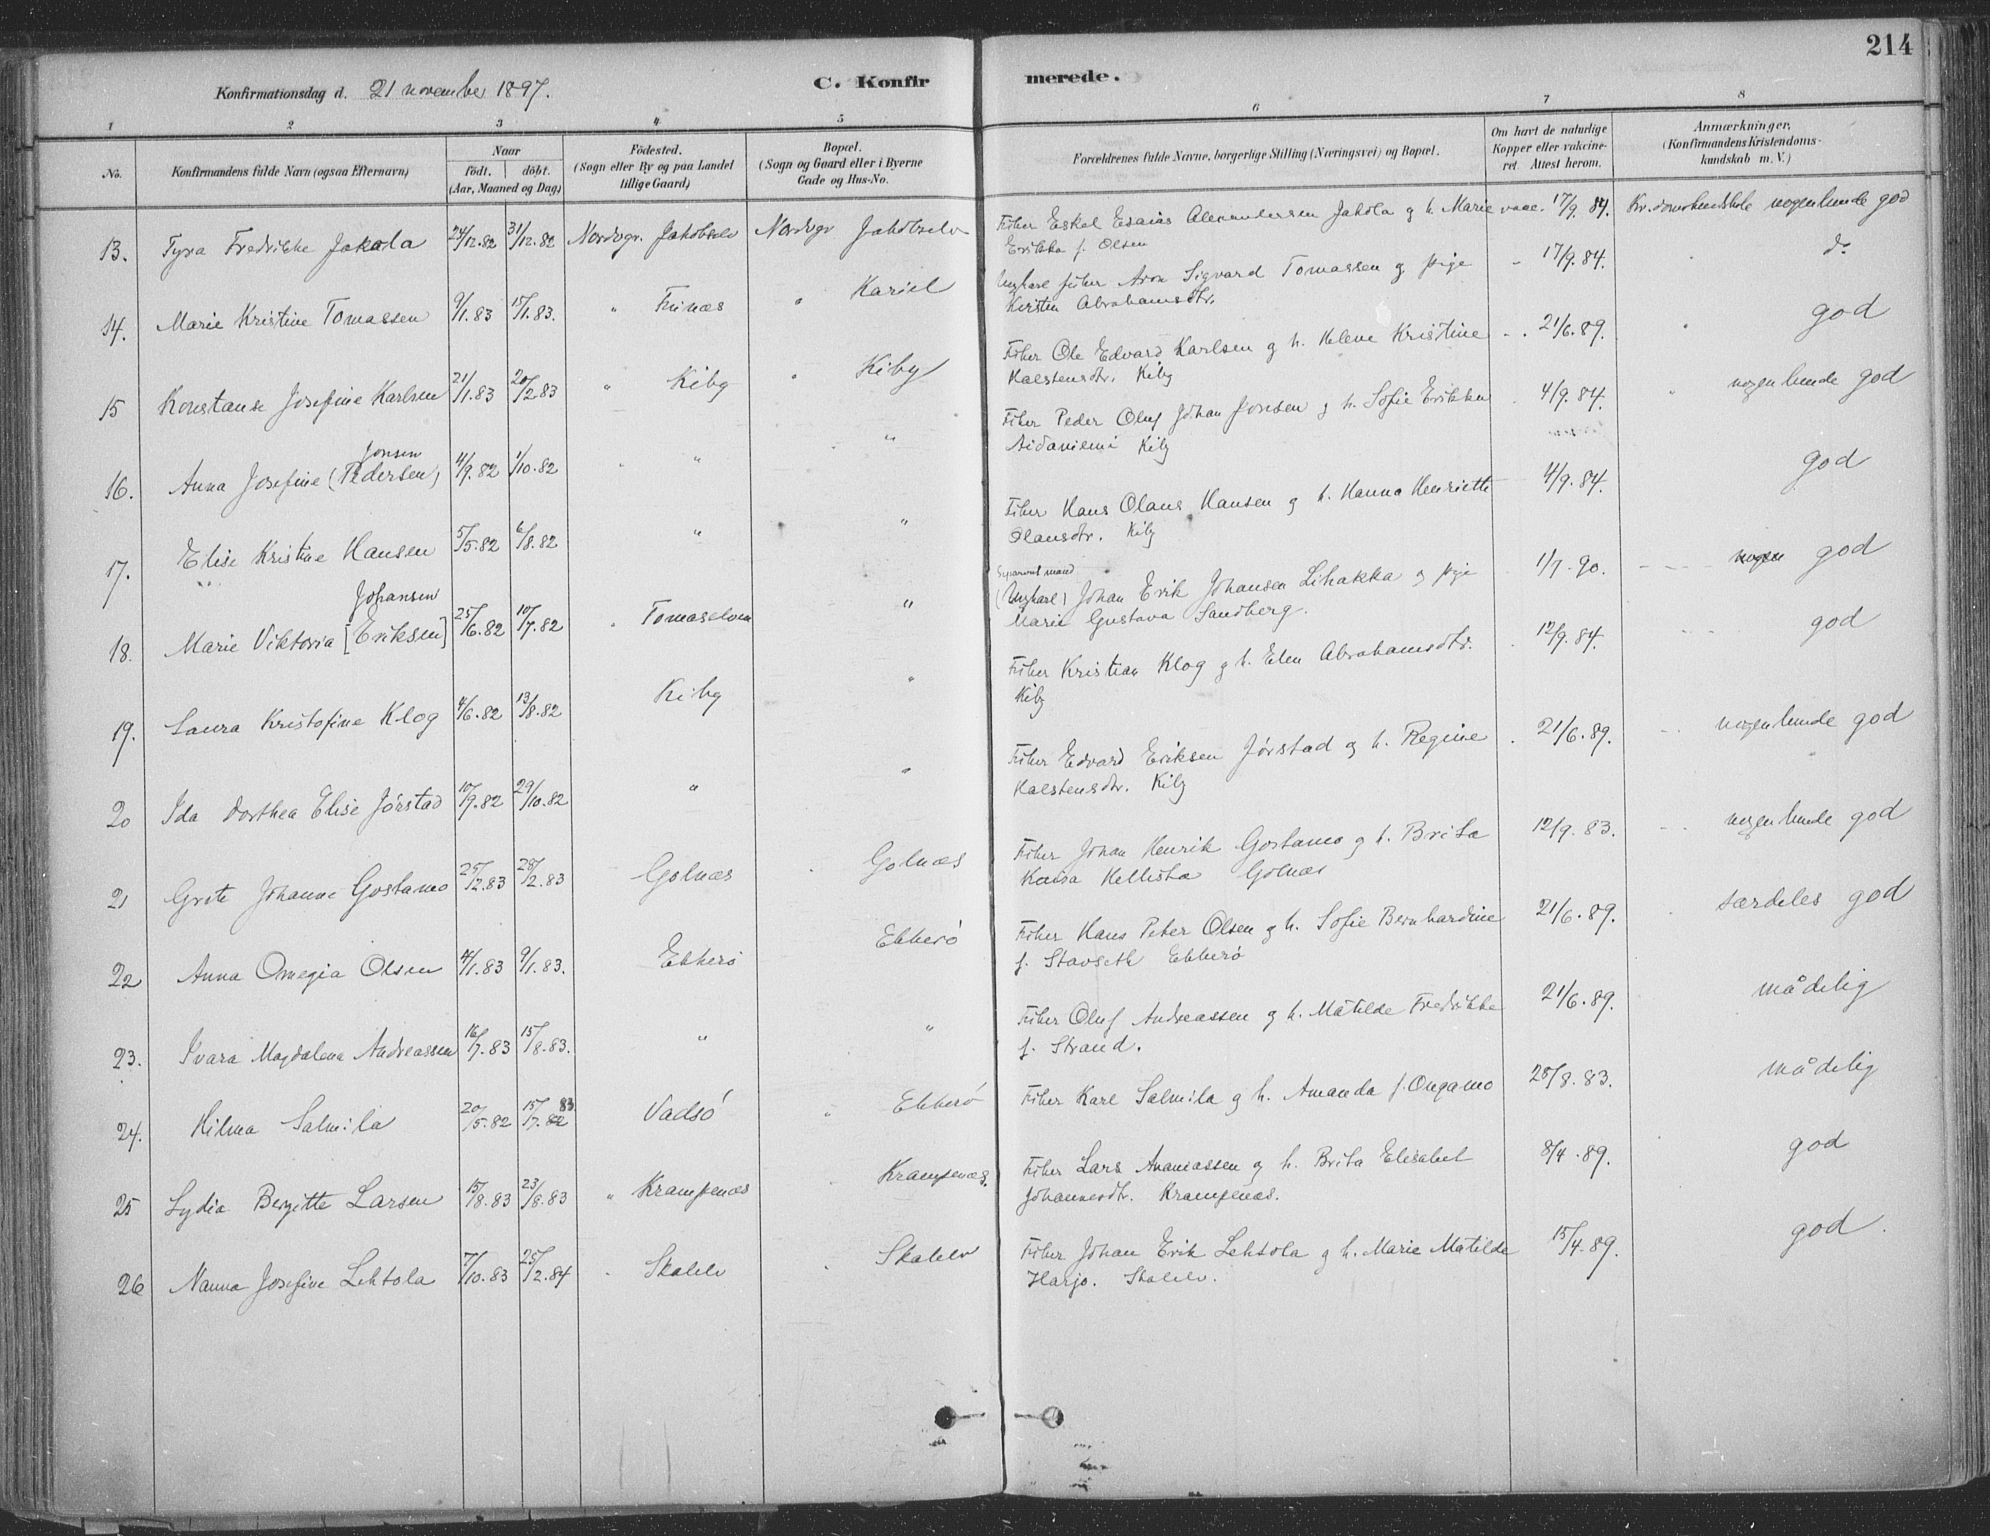 214
Konfirmationsdag d. 21 november 1897.
C. Konfirmerede.
1 2 3 4 5 6 7 8
No.
Konfirmandens fulde Navn (ogsaa Efternavn)
Naar
födt. döbt.
(Aar, Maaned og Dag)
Födested.
(Sogn eller By og paa Landet
tillige Gaard)
Bopæl.
(Sogn og Gaard eller i Byerne
Gade og Hus-No.
Forældrenes fulde Navne, borgerlige Stilling (Næringsvei) og Bopæl.
Om havt de naturlige
Kopper eller vakcine-
ret. Attest herom.
Anmærkninger,
(Konfirmandens Kristendoms-
kundskab m. V.)
13. Tyra Fredrikke Jakola 24/12.82 31/12.82 Nordvgr. Jakobselv Nordvgr Jakobselv Fisker Eskel Esaias Alexandersen Jakola g h. Marie vacc. 17/9.84. nogenlunde god
Erikka f. Olsen
14. Marie Kristine Tomassen 9/1.83 15/1.83. " Finæs " Kariel Ungkarl fisker Aron Sigvard Tomassen g pige " 17/9.84. " do
Kirsten Abrahamsdtr.
15 Konstanse Josefine Karlsen 21/1.83 20/2.83 " Kiby " Kiby Fisker Ole Edvard Karlsen g h. Helene Kristine " 21/6.89. " god
Halstensdtr. Kiby
16. Anna Josefine (Pedersen) Jonsen 11/9.82 1/10.82 " " " Fisker Peder Oluf Johan Jonsen g h. Sofie Erikka 4/9.84. " nogenlunde god
Aidaniemi Kiby
17. Elise Kristine Hansen 5/5.82 6/8.82 " " Fisker Hans Olaus Hansen g h. Hanna Henriette 4/9.84. god
Olausdtr. Kiby
18. Marie Viktoria [Eriksen] Johansen 25/6.82 10/7.82 " Tomaselven " Separeret mand
(Ungkarl) Johan Erik Johansen Lihakka g pige 1/7.90. nogen god
Marie Gustava Sandberg.
19. Laura Kristofine Klog 4/6.82 13/8.82 Kiby " Fisker Kristian Klog g h. Elen Abrahamsdtr. 12/9.84. god
Kiby
20 Ida Dorthea Elise Jörstad 10/9.82 29/10.82 " " Fisker Edvard Eriksen Jörstad og h. Regine 21/6.89. nogenlunde god
Halstensdtr. Kiby
21 Grete Johanne Gostamo 25/2.83 28/2.83 Golnæs Golnæs Fisker Johan Henrik Gostamo g h. Brita 12/9.83. nogenlunde god
Kaisa Hellista Golnæs
22 Anna Omegia Olsen 4/1.83 9/1.83. Ekkerö Ekkerö Fisker Hans Peter Olsen g h. Sofie Bernhardine 21/6.89. særdeles god
f. Stavseth Ekkerö
23. Ivara Magdalena Andreassen 16/7.83 15/8.83. " " Fisker Oluf Andreassen g h. Matilde Fredrikke 21/6.89. mådelig
f. Strand.
24. Hilma Salmila 20/5.82 15/7.82 83 Vadsö " Ekkerö Fisker Karl Salmila g h. Amanda f. Ongamo 28/8.83. mådelig
25 Lydia Bergitte Larsen 15/8.83 23/8.83 " Krampenæs Krampenæs. Fisker Lars Ananiassen og h. Brita Elisabet 8/4.89. god
Johannesdtr. Krampenæs.
26 Nanna Josefine Lehtola 7/10.83 25/2.84 " Skalelv Skalelv Fisker Johan Erik Lehtola g h. Marie Matilde 15/4.89. god.
Harjo. Skalelv.